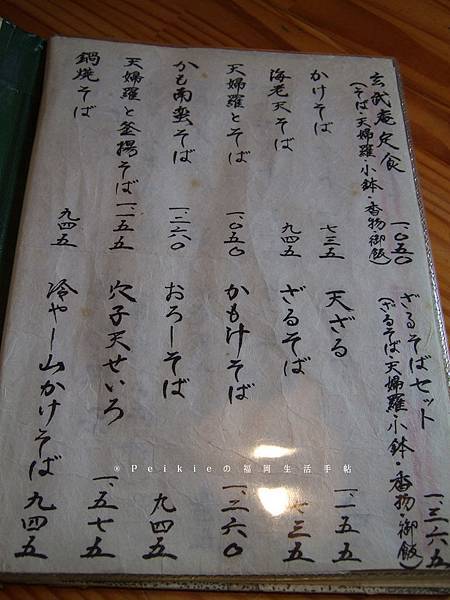 玄武庵定食 一、〇五〇
(そば・天婦羅・小鉢・香物・御飯)
かけそば 七三五
海老天そば 九四五
天婦羅とそば 一、〇五〇
かも南蛮そば 一、二六〇
天婦羅と釜揚そば 一、一五五
鍋焼そば 九四五
ざるそばセット 一、三六五
(ざるそば天婦羅・小鉢・香物・御飯)
天ざる 一、一五五
ざるそば 七三五
かも汁そば 一、二六〇
おろしそば 九四五
穴子天せいろ 一、五七五
冷やし山かけそば 九四五
® Peikieの福岡生活手帖